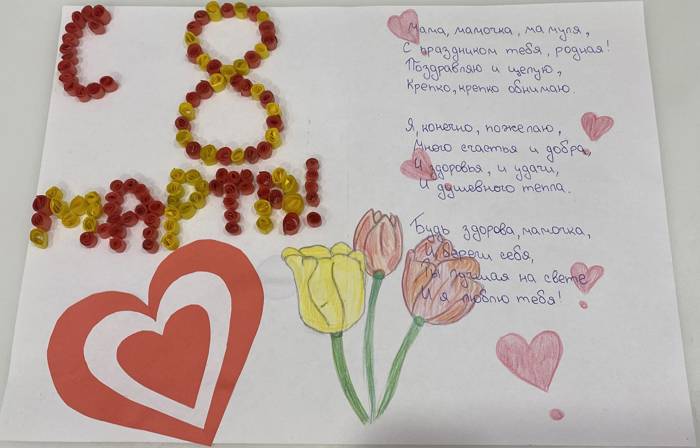 С
8
МАРТА!
Мама, мамочка, мамуля,
С праздником тебя, родная!
Поздравляю и целую,
Крепко, крепко обнимаю.
Я, конечно, пожелаю,
Много счастья и добра,
И здоровья, и удачи,
И душевного тепла.
Будь здорова, мамочка,
И береги себя,
Ты лучшая на свете
И я люблю тебя!